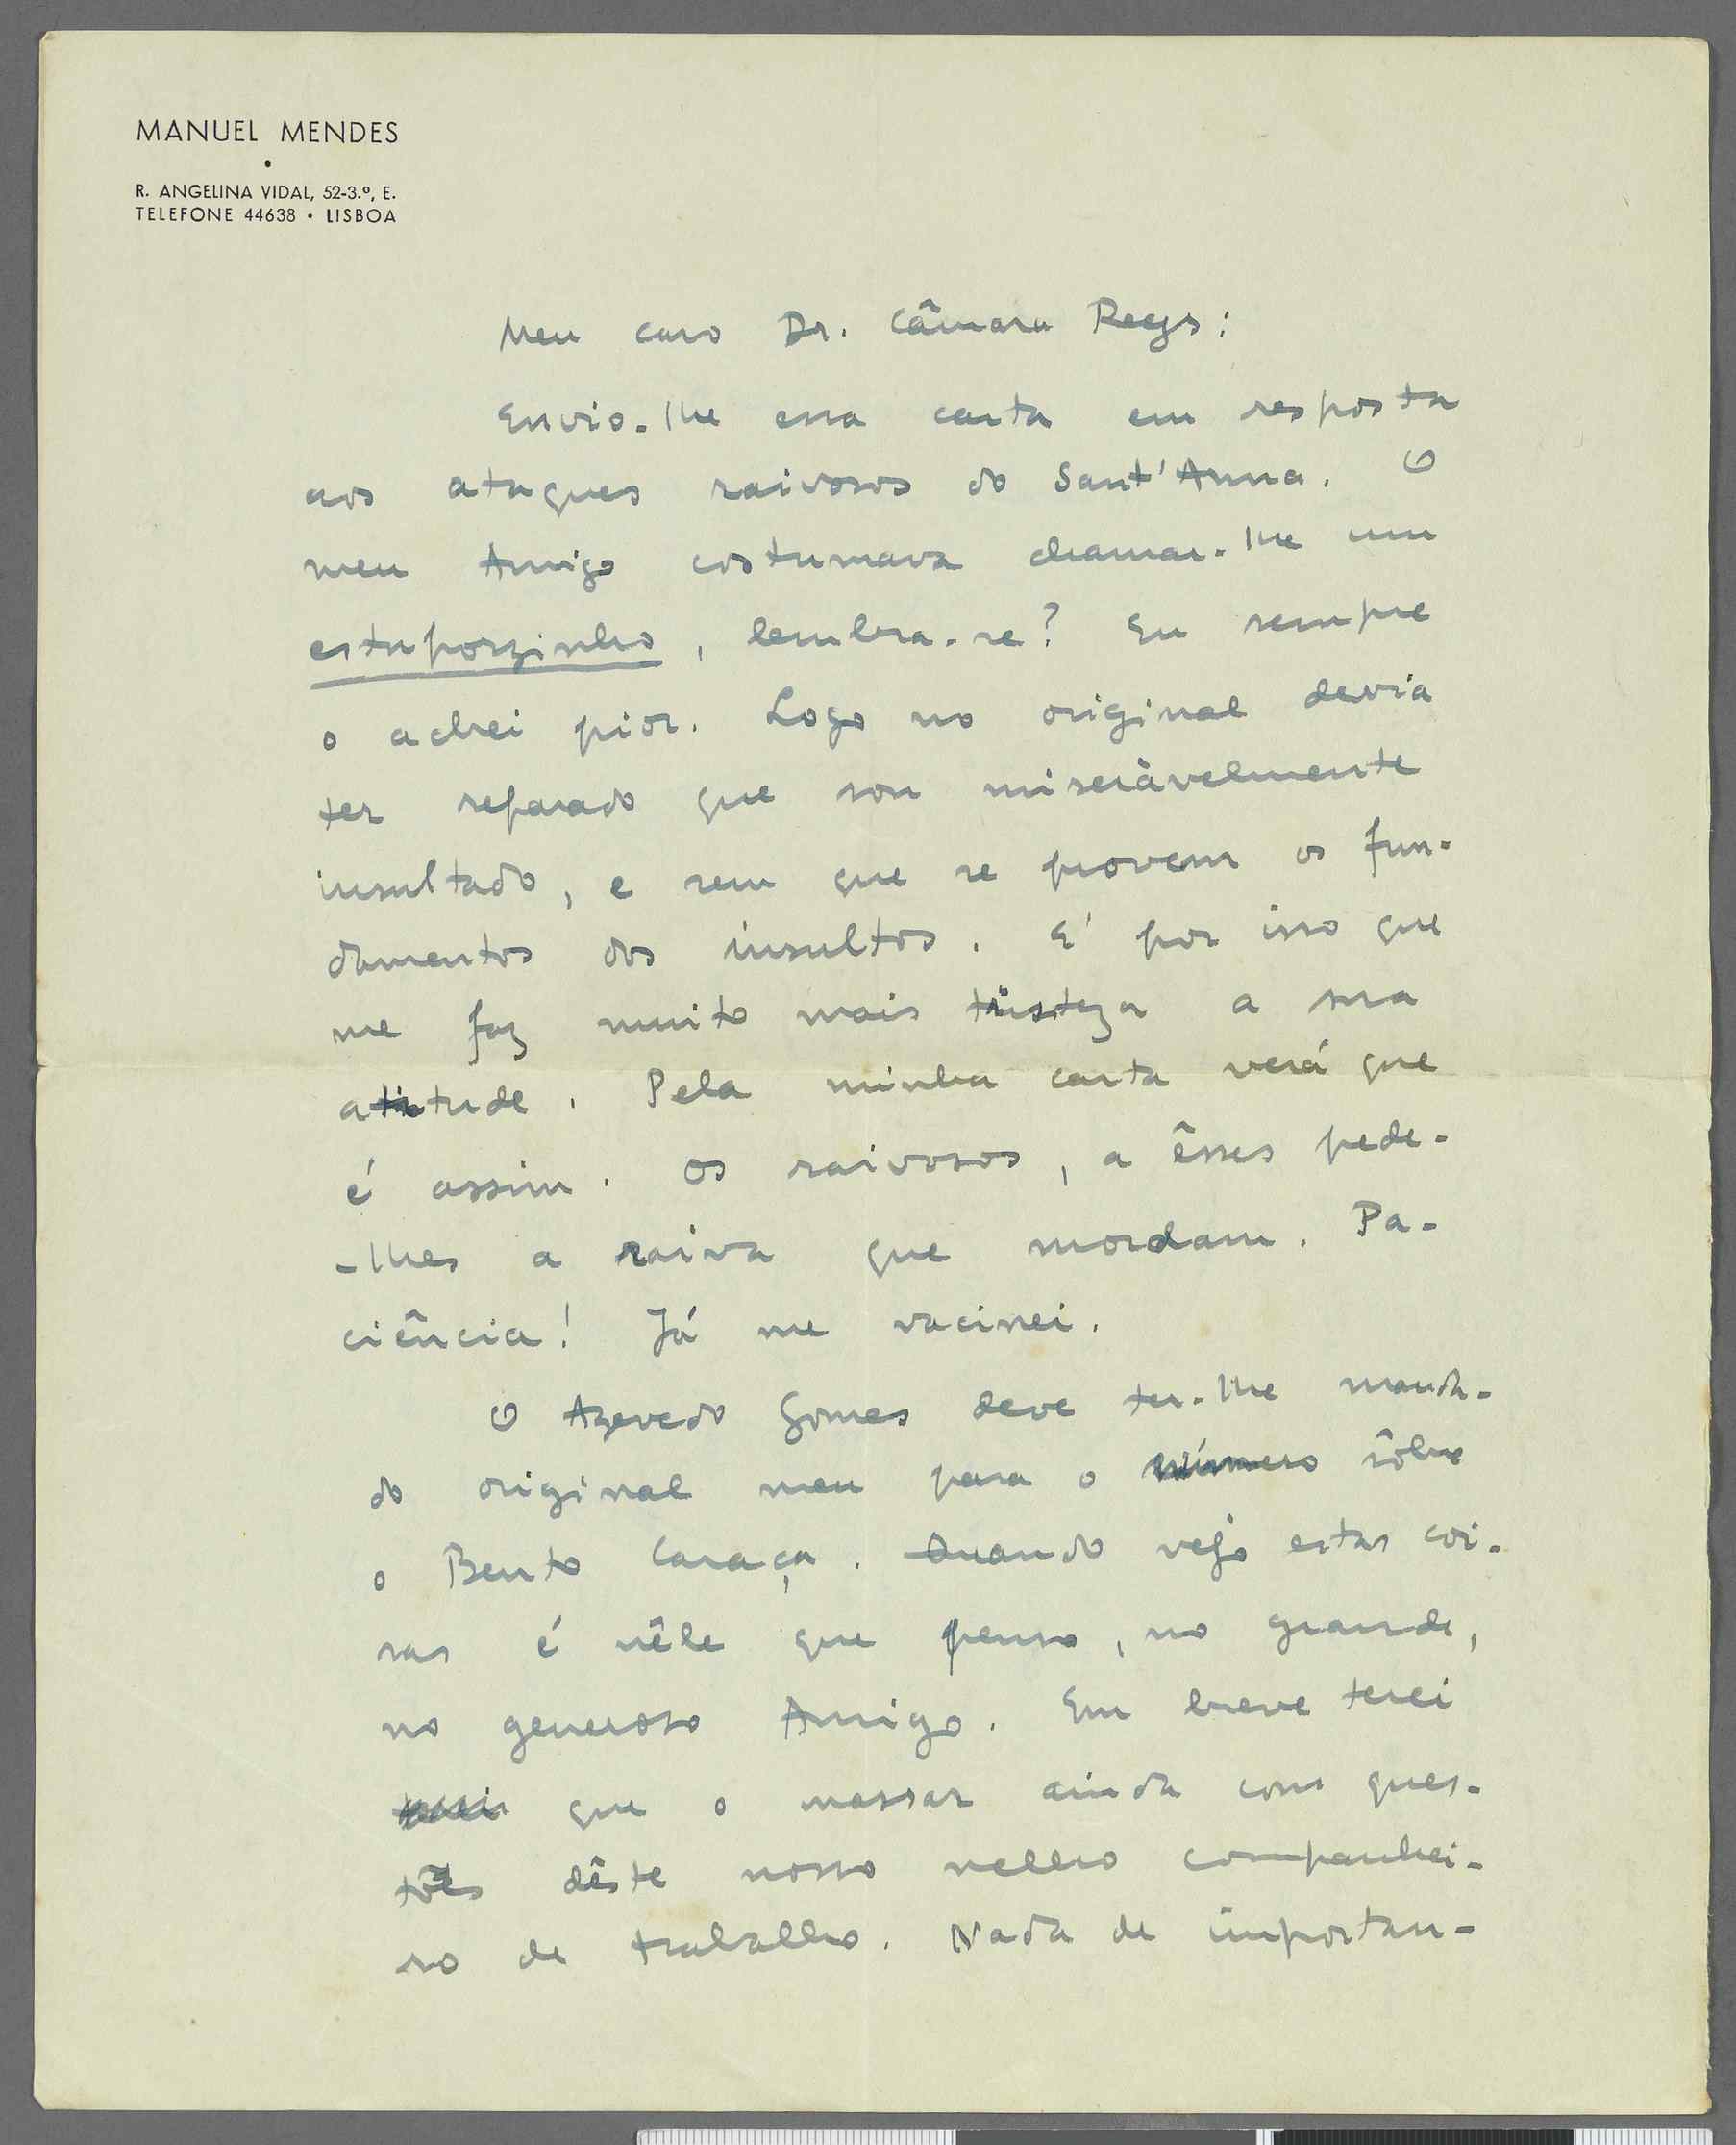 MANUEL MENDES
•
R. ANGELINA VIDAL, 52-3.º, E.
TELEFONE 44638 • LISBOA
Meu caro Dr. Câmara Reys:
Envio-lhe essa carta em resposta
aos ataques raivosos do Sant'Anna. O
meu Amigo costumava chamar-lhe um
estuporzinho, lembra-se? Eu sempre
o achei pior. Logo no original devia
ter reparado que sou miseràvelmente
insultado, e sem que se provem os fun-
damentos dos insultos. E' por isso que
me faz muito mais tristeza a sua
atitude. Pela minha carta verá que
é assim. Os raivosos, a êsses pede-
-lhes a raiva que mordam. Pa-
ciência! Já me vacinei.
O Azevedo Gomes deve ter-lhe manda-
do original meu para o número sôbre
o Bento Caraça. Quando vejo estas coi-
sas é nêle que penso, no grande,
no generoso Amigo. Em breve terei
que o massar ainda com ques-
tões dêste nosso velho companhei-
ro de trabalho. Nada de importan-